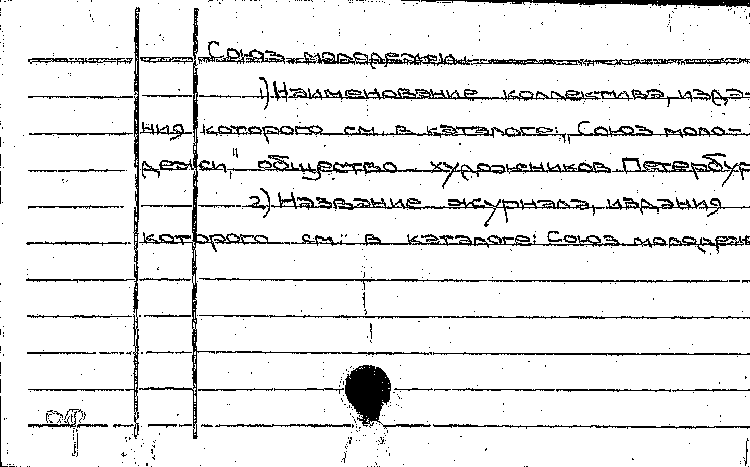 Союз молодежи.
1) Наименование коллектива, изда-
ния которого см. в каталоге: „Союз моло-
дежи", общество художников. Петербур
2) Название журнала, издания
которого см. в каталоге: Союз молодеж
ор